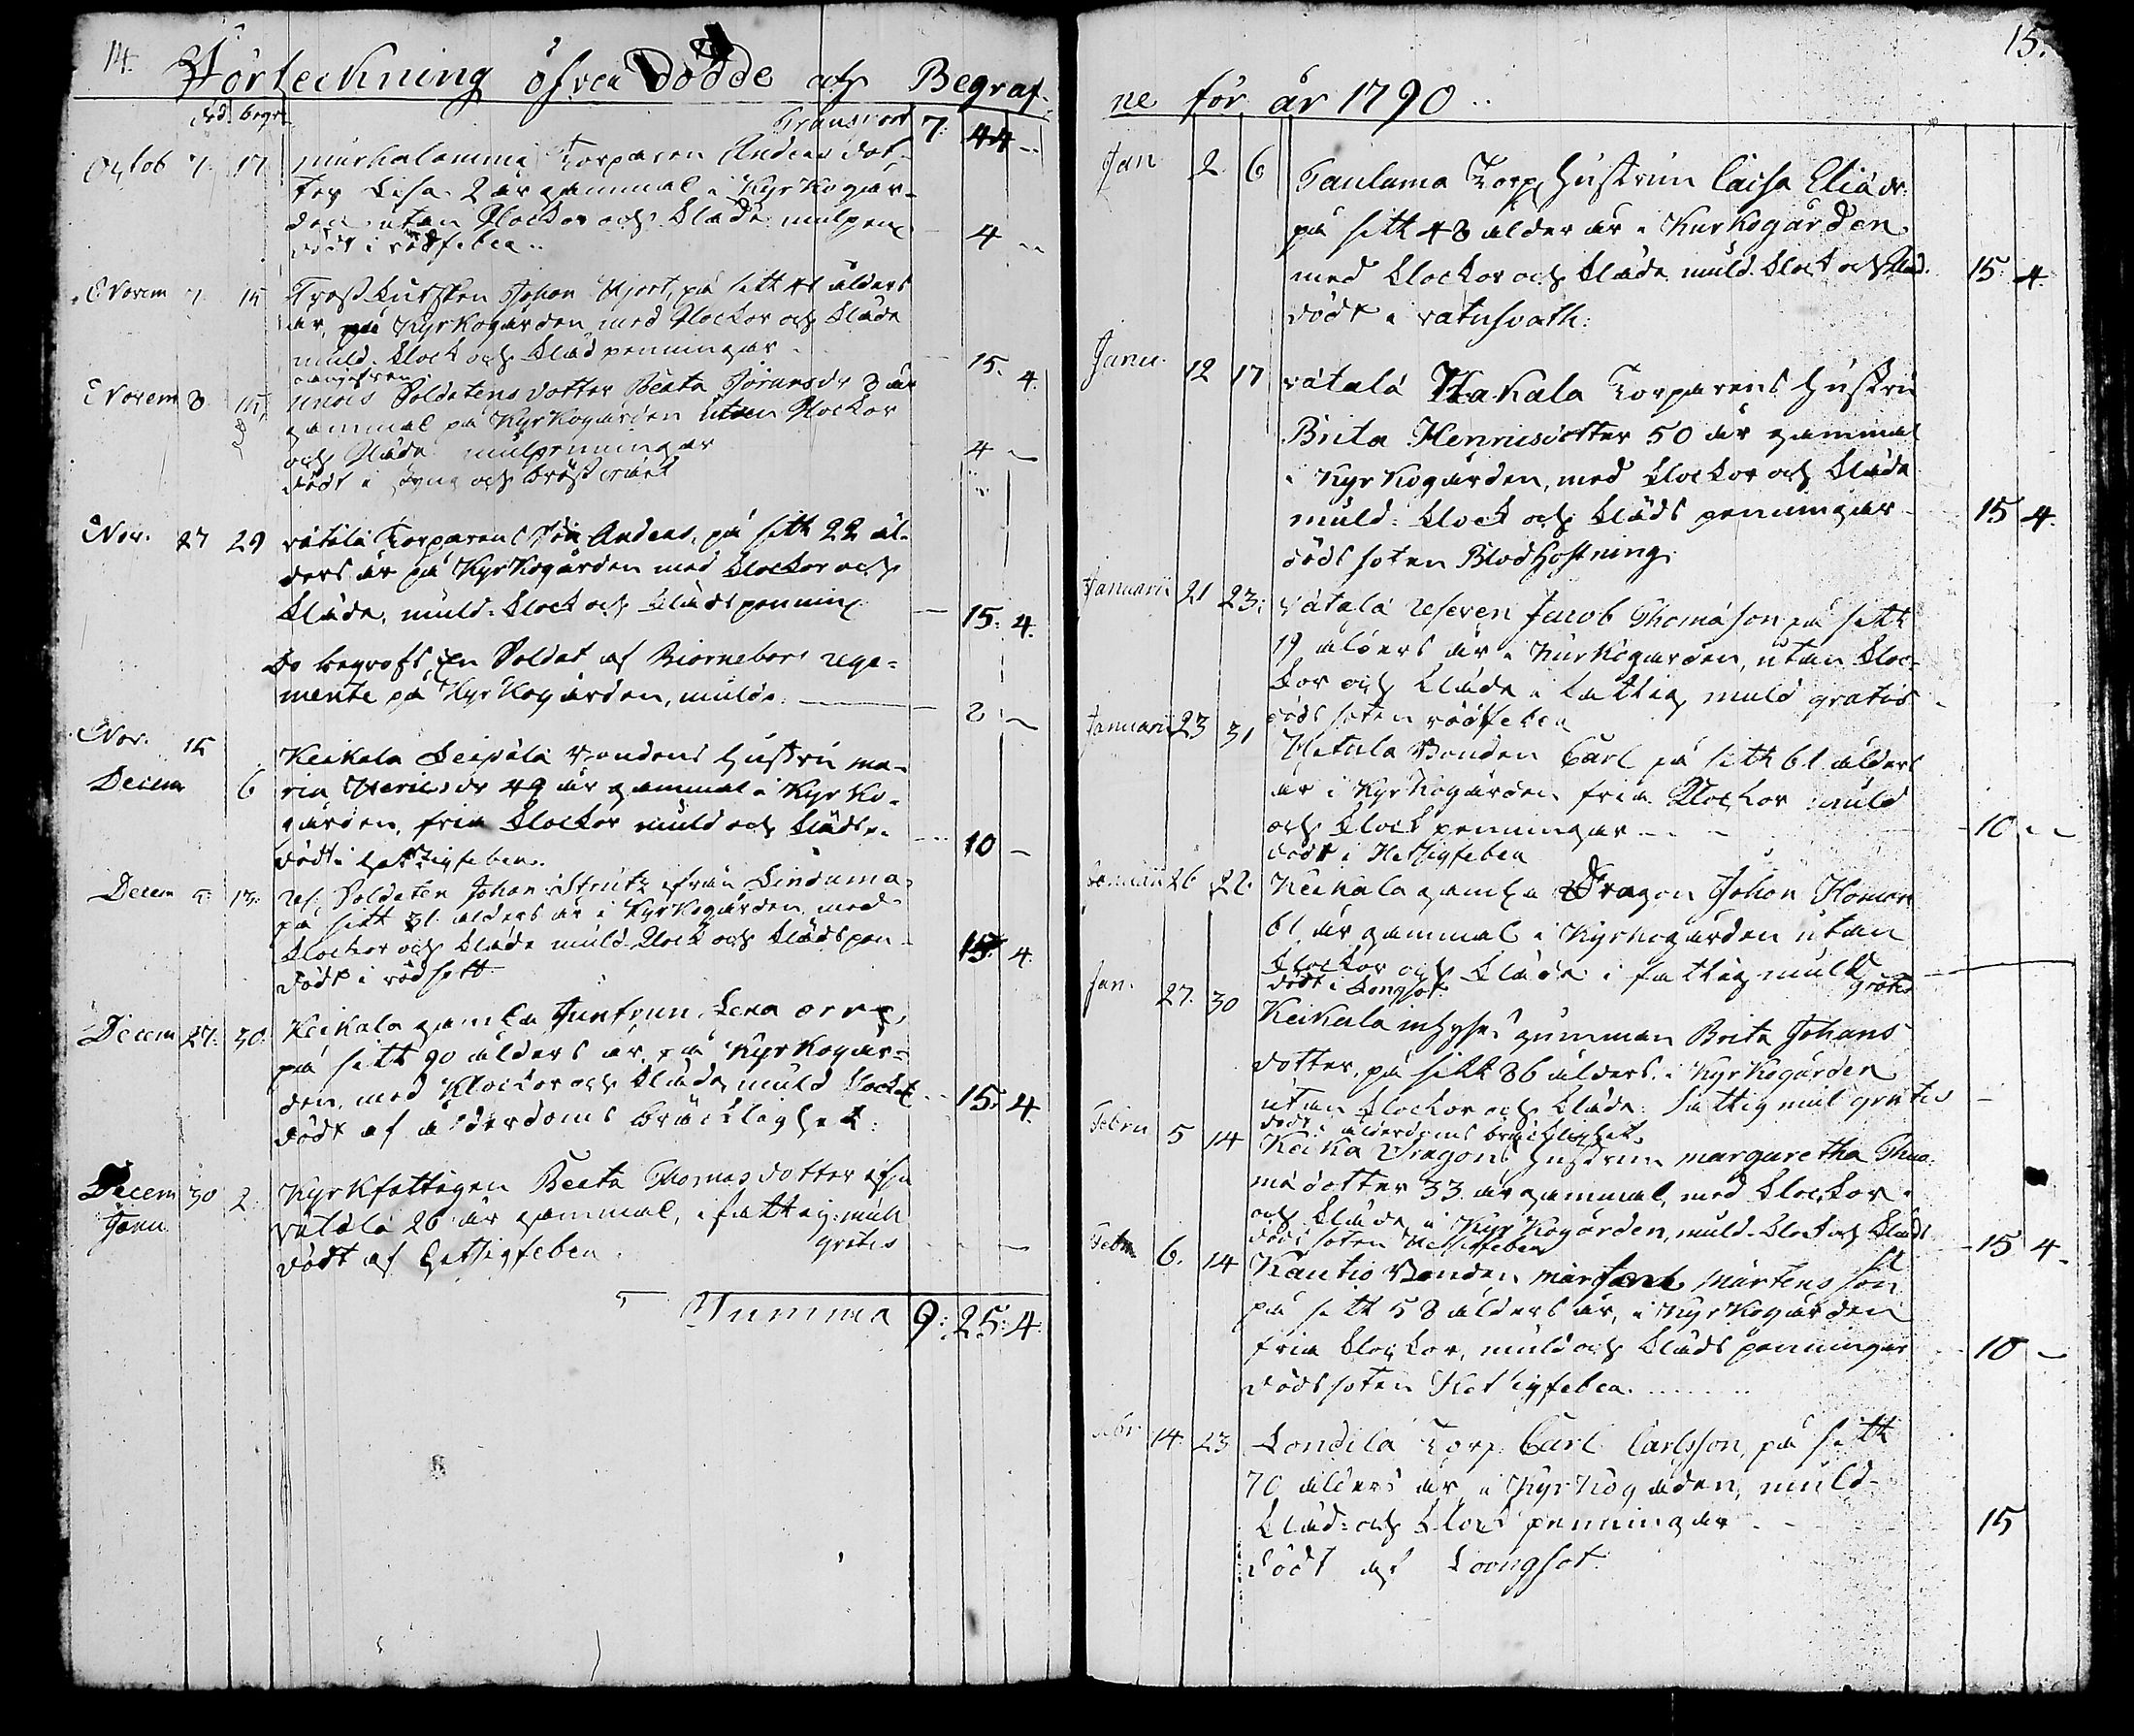 14.
Förteckning öfver Dödde och Begraf-
död. begr.
Transport 7: 44 --
Octob 7. 17 murkalammi Torparen Anders dot-
ter Lisa 2 år gammal i Kyrkogår-
den utan Klockor och Kläde mulpen 4 --
dödt i rödfeber
Novem 7. 15 Trosskusken Johan Hjort, på sitt 41 ålders
år, på Kyrkogården med Klockor och Kläde
muld. Klock och Kläd penningar 15. 4.
Novem 8 15 Soldatens dotter Beata Jöransdr 8 år
gammal på Kyrkogården utan Klockor
och Kläde mulpenningar 4 --
dödt i och bröst
Nov. 27 29 vätilä Torparens Son Anders, på sitt 22 ål-
ders år på Kyrkogården med Klockor och
Kläde, muld. Klock och Klädspenning 15. 4.
Do begrofs En Soldat af Biörnebors rege-
mente på Kyrkogården, mulds. 2 --
Nov. 15
Decem 6 Keikala Seipälä Bondens Hustru ma-
ria Henricsdr 49 år gammal i Kyrko-
gården, fria Klockor muld och Kläds. 10 --
dödt i hettigfeber.
Decem 5. 13. Soldaten Johan Strutz från Sinduma
på sitt 31 ålders år i Kyrkogården med
Klockor och Kläde muld Klock och Klädspen 15. 4.
dödt i rödsott
Decem 27. 30. Keikala gamla Lena orre,
på sitt 90 ålders år, på Kyrkogår-
den, med Klockor och Kläde, muld Klock 15. 4.
dödt af ålderdoms bräcklighet.
Decem 30 2. Kyrkfattigen Beata Thomasdotter ifrån
Janu
vätälä 26 år gammal, i fattig mull
gratis
dödt af hetsigfeber
Summa 9: 25: 4:
15.
ne för år 1790 ..
Jan 2. 6 Taulama Torp. Hustrun Caisa Eliædr.
på sitt 48 ålder år i Kyrkogården
med Klockor och Kläde muld. Klock och Kläd. 15 4.
dödt i
Janu. 12 17 vätalä Hakala Torparens Hustru
Brita Henricsdotter 50 år gammal
i Kyrkogården, med Klockor och Kläde
muld. Klock och Kläds penningar 15 4.
dödssoten Blodhostning.
Januarii 21 23. vätalä Jacob Thomason på sitt
19 ålders år i Kyrkogården, utan Kloc-
kor och Kläde i fattig muld gratis
dödssoten rödfeber
Januarii 23 31 Hetula Bonden Carl på sitt 61 ålders
år i Kyrkogården fria Klockor muld
och Klock penningar 10 --
dödt i Hetsigfeber
Januarii 26 22. Keikala gamla Dragon Johan Homan
61 år gammal i Kyrkogården utan
Klockor och Kläde i fattig muld
dödt i Longsot. gratis
Jan. 27. 30 Keikala inhyses gumman Brita Johans
dotter, på sitt 86 ålders i Kyrkogården
utan Klockor och Kläde. fattig mul gratis
dödt i ålderdoms bräcklighet.
Febru 5 14 Keika Dragons Hustrun margaretha Tho-
madotter 33 år gammal, med Klockor
och Kläde, i Kyrkogården, muld. Klock och Kläds 15 4.
dödssoten Hetsigfeber
Febr 6. 14 Kautio Bonden Mårtens son
på sitt 58 ålders år, i Kyrkogården
fria Klockor, muld och Kläds penningar 10 --
dödssoten Hetsigfeber.
Febr 14. 23 Sondila Torp. Carl Carlsson, på sitt
70 ålders år, i Kyrkogåden, muld-
Kläd- och Klock penningar 15
dödt af Loongsot